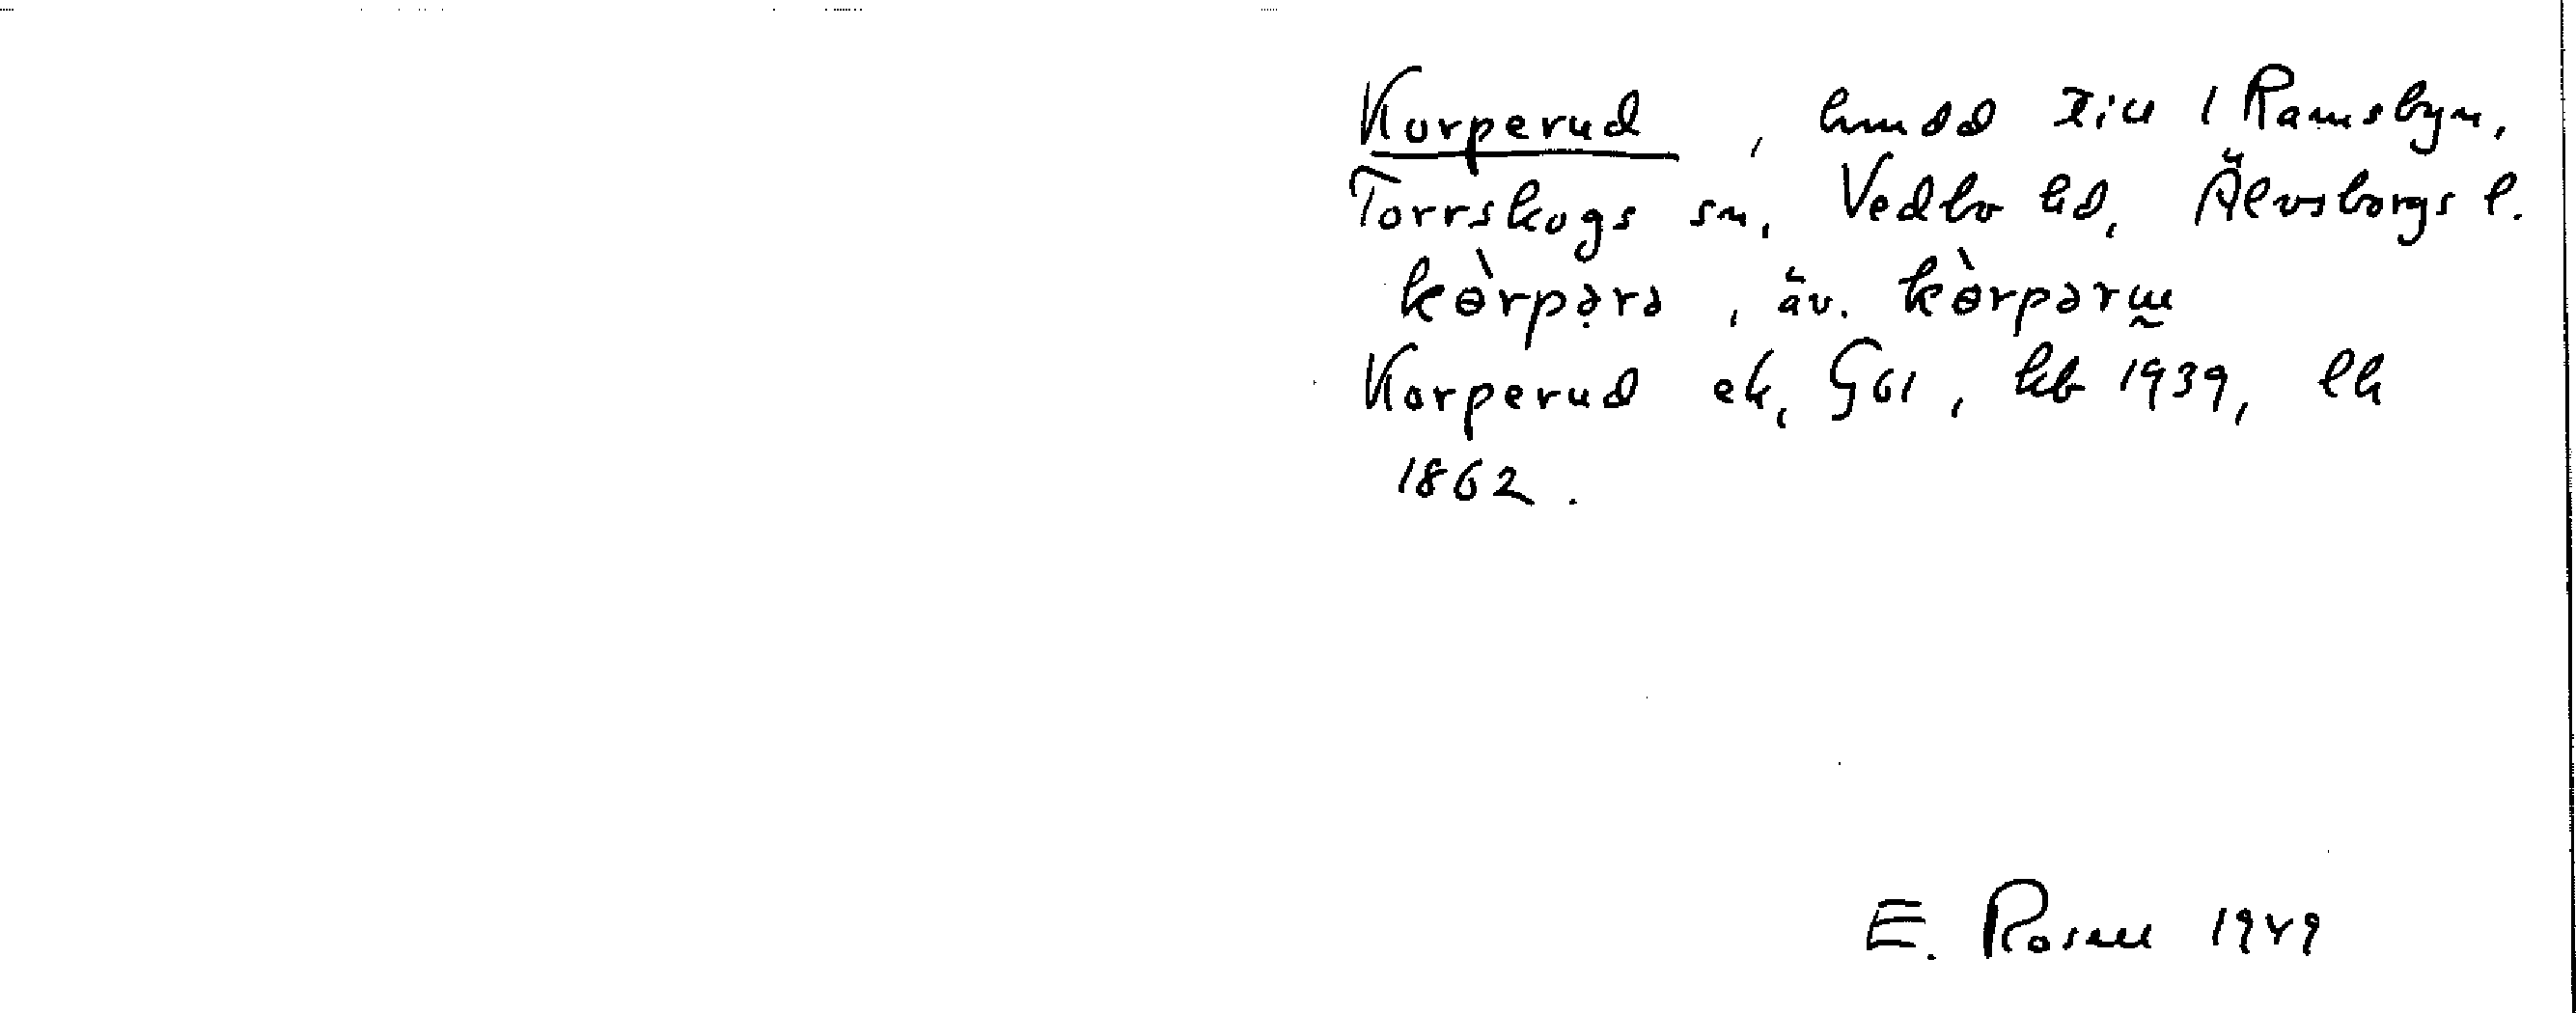 Korperud, hmdd till 1 Ramsbyn,
Torrskogs sn, Vedbo hd, Älvsborgs l.
kɵ̀rpərə, äv. kɵ̀rpərɯ̰
Korperud ek, G61, kb 1939, lh
1862.
E. Rosell 1949